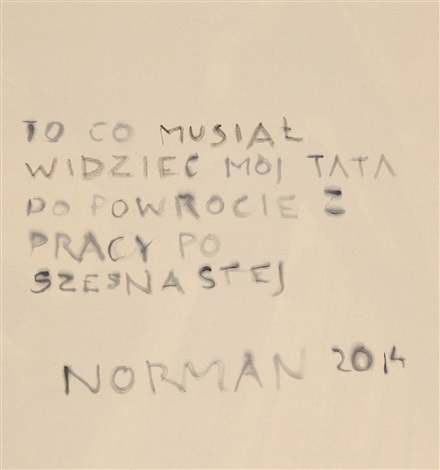 TO CO MUSIAŁ
WIDZIEĆ MÓJ TATA
PO POWROCIE Z
PRACY PO
SZESNASTEJ
NORMAN 2014